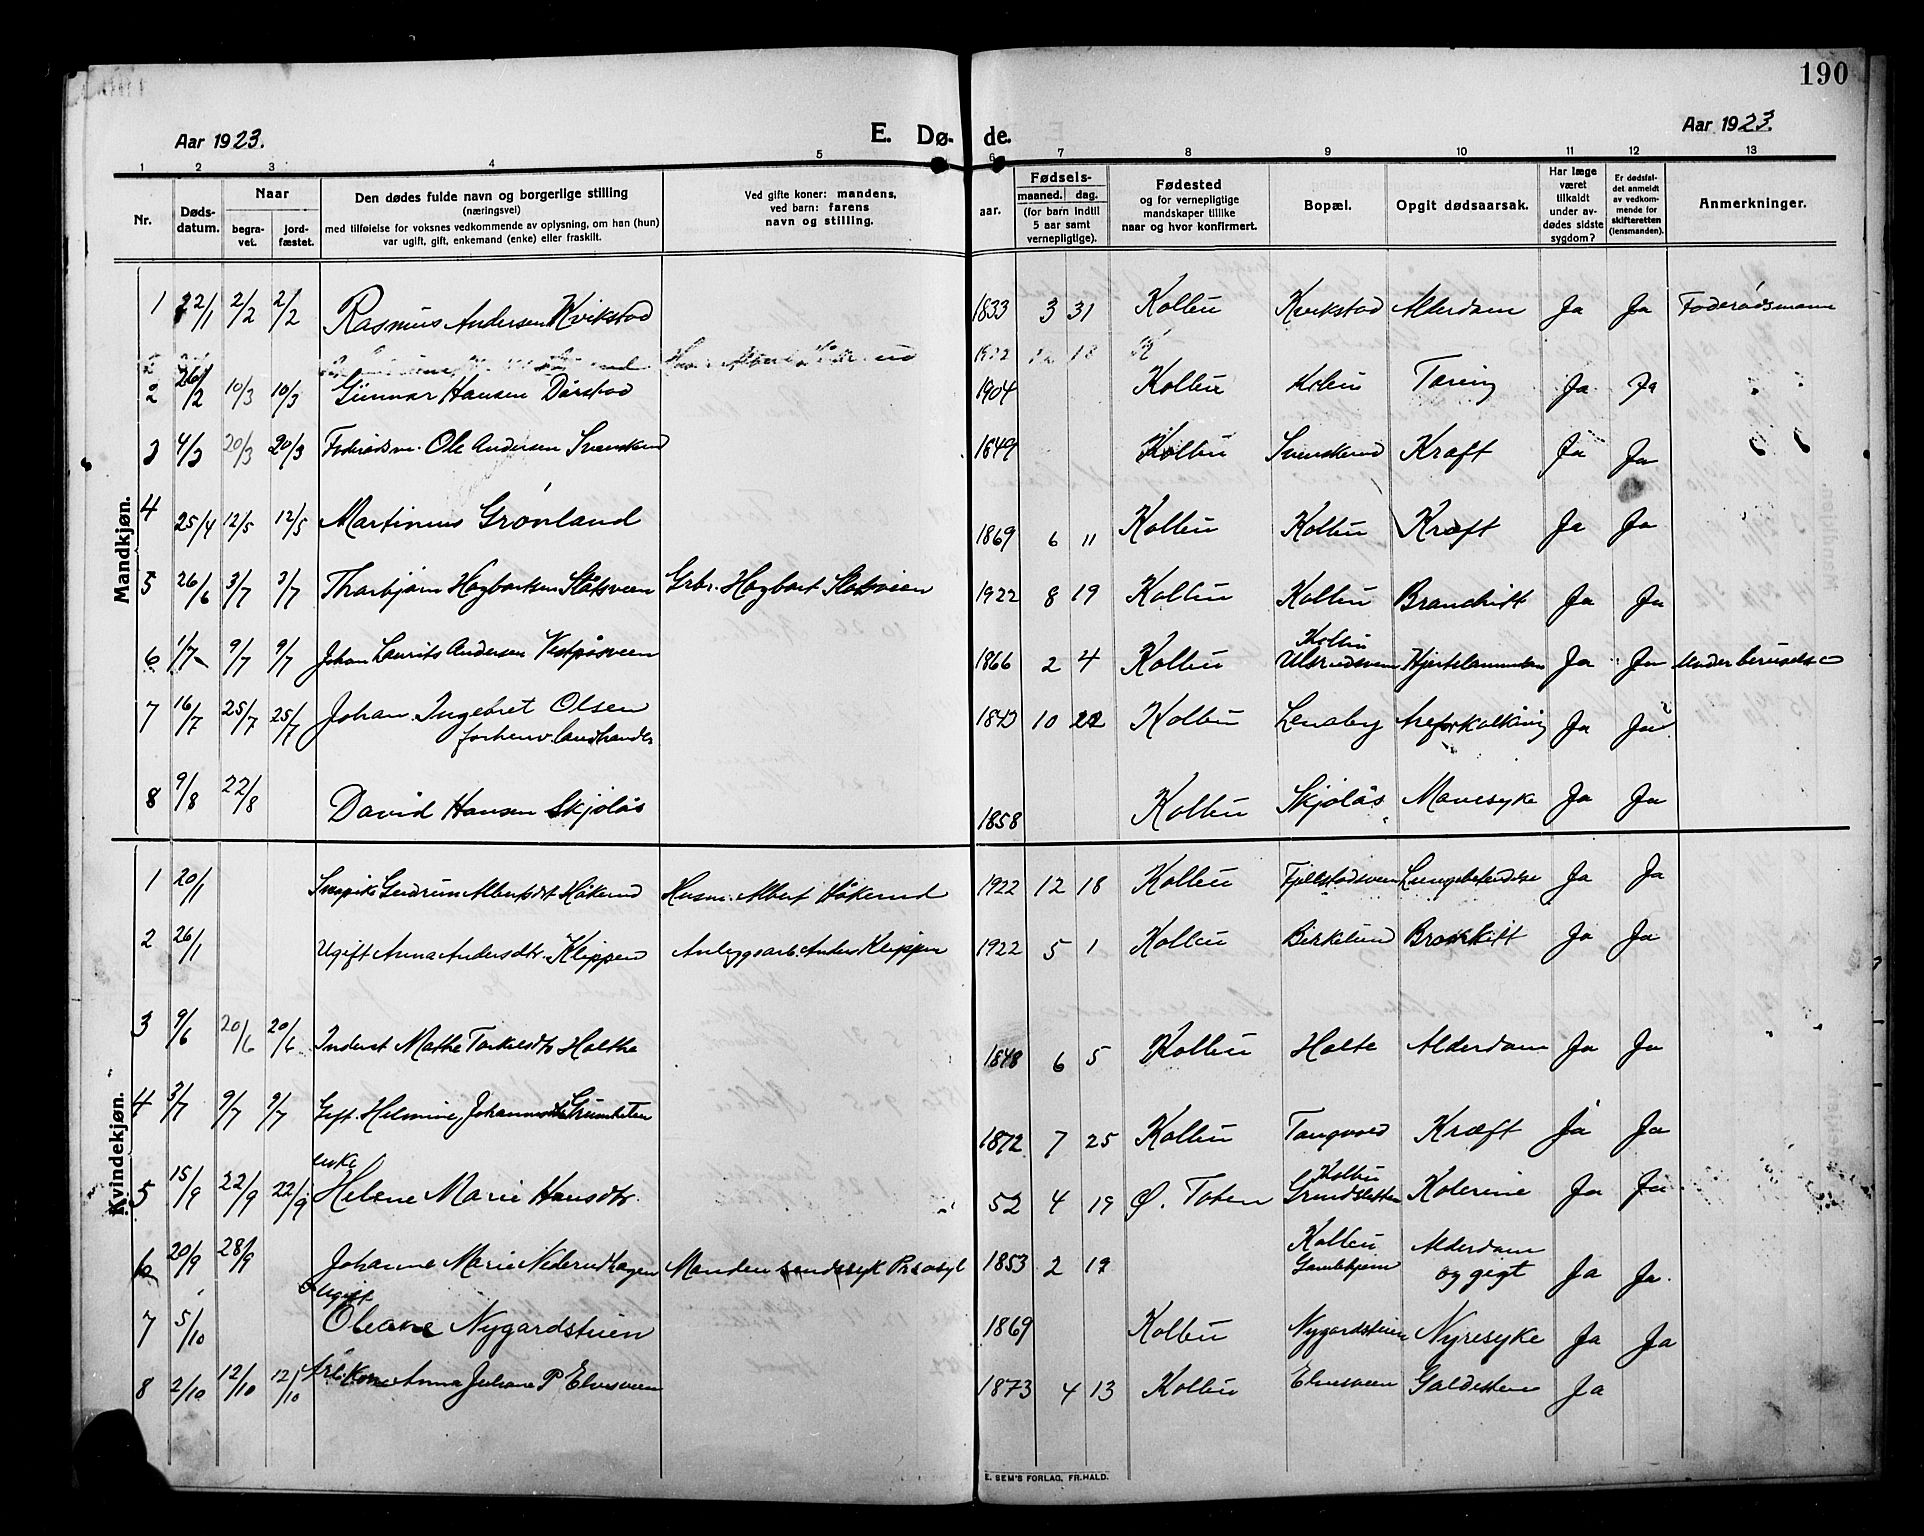 190
Aar 1923.
E. Dø- de.
Aar 1923.
1 2 3 4 5 6 7 8 9 10 11 12 13
Nr.
Døds-
datum.
Naar
begra-
vet.
jord-
fæstet.
Den dødes fulde navn og borgerlige stilling
(næringsvei)
med tilføielse for voksnes vedkommende av oplysning, om han (hun)
var ugift, gift, enkemand (enke) eller fraskilt.
Ved gifte koner: mandens,
ved barn: farens
navn og stilling.
aar.
Fødsels-
maaned. dag.
(for barn indtil
5 aar samt
vernepligtige).
Fødested
og for vernepligtige
mandskaper tillike
naar og hvor konfirmert.
Bopæl.
Opgit dødsaarsak.
Har læge
været
tilkaldt
under av-
dødes sidste
sygdom?
Er dødsfal-
det anmeldt
av vedkom-
mende for
skifteretten
(lensmanden).
Anmerkninger.
Mandkjøn.
1 22/1 2/2 2/2 Rasmus Andersen Kvikstad 1833 3 31 Kolbu Kvikstad Alderdom Ja Ja Føderådsmann
2 26/2 10/3 10/3 Gunnar Hansen Dårstad 1904 Kolbu Kolbu Tæring Ja Ja " "
3 4/3 20/3 20/3 Føderådsm. Ole Andersen Svenskerud 1849 Kolbu Svenskerud Kræft Ja Ja " "
4 25/4 12/5 12/5 Martinius Grønland 1869 6 11 Kolbu Kolbu Kræft Ja Ja
5 26/6 3/7 3/7 Thorbjørn Hagbartsen Slåtsveen Grbr. Hagbart Slåtsveen 1922 8 19 Kolbu Kolbu Bronchitt Ja Ja
6 1/7 9/7 9/7 Johan Laurits Andersen Vestpåsveen 1866 2 4 Kolbu Kolbu
Ulsrudsveen Hjertelammelse Ja Ja Under beruselse
7 16/7 25/7 25/7 Johan Ingebret Olsen
forhenv. landhandler 1843 10 22 Kolbu Lenaby Areforkalkning Ja Ja
8 9/8 22/8 David Hansen Skjølås 1858 Kolbu Skjølås Mavesyke Ja Ja
Kvindekjøn.
1 20/1 Gudrun Albertsdt. Håkerud Husm. Albert Håkerud 1922 12 18 Kolbu Fjellstadsveen Lungebetendelse Ja Ja
2 26/1 Ugift Anna Andersdtr. Klippen Anleggsarb. Anders Klippen 1922 5 1 Kolbu Birkelund Bronkitt Ja Ja
3 9/6 20/6 20/6 Inderst Mathe Torkildtr Holthe 1848 6 5 Kolbu Holte Alderdom Ja Ja
4 3/7 9/7 9/7 Gift. Helmine Johannesdt. 1872 7 25 Kolbu Tangvold Kræft Ja Ja
5 15/9 22/9 22/9 enke
Helene Marie Hansdtr. 52 4 19 Ø. Toten Kolbu
Grundsletten Kolerine Ja Ja
6 20/9 28/9 Johanne Marie Nederudhagen Manden sindssyk På asyl 1853 2 19 Kolbu
Gamlehjem Alderdom
og gigt Ja Ja.
7 5/10 Ugift
Oleane Nygardstuen 1869 Kolbu Nygardstuen Nyresyke Ja Ja
8 2/10 12/10 12/10 Arb. Kone Anna Juliane P Elvesveen 1873 4 13 Kolbu Elvesveen Galdesten Ja
E. SEM'S FORLAG, FR.HALD.